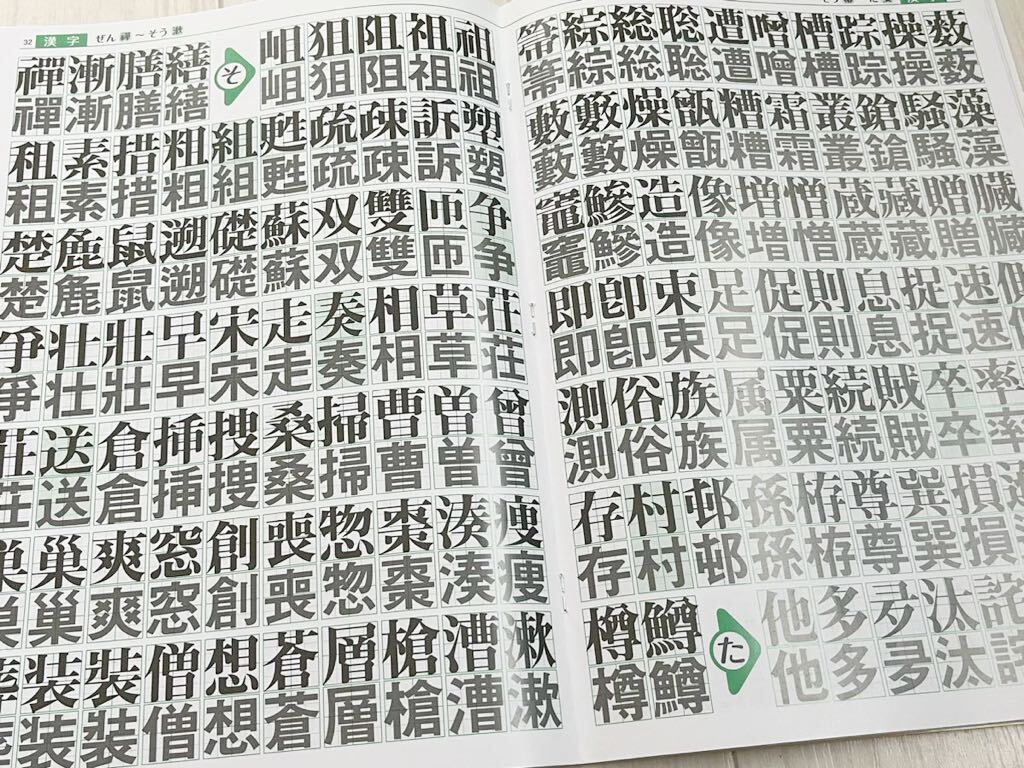 32 漢字 ぜん 禪～そう 漱
禪漸膳繕 そ 岨狙阻祖祖
禪漸膳繕 岨狙阻祖祖
租素措粗組甦疏疎訴塑
租素措粗組甦疏疎訴塑
楚麁鼠遡礎蘇双雙匝争
楚麁鼠遡礎蘇双雙匝争
爭壮壯早宋走奏相草荘
爭壮壯早宋走奏相草荘
莊送倉挿捜桑掃曹曽曾
莊送倉挿捜桑掃曹曽曾
巣巢爽窓創喪惣棗湊痩
巣巢爽窓創喪惣棗湊痩
装裝僧想蒼層槍漕漱
装裝僧想蒼層槍漕漱
漢字
箒綜総聡遭噌槽踪操薮
箒綜総聡遭噌槽踪操薮
藪籔燥甑糟霜叢鎗騒藻
藪籔燥甑糟霜叢鎗騒藻
竈鰺造像増憎蔵藏贈臓
竈鰺造像増憎蔵藏贈臓
即卽束足促則息捉速側
即卽束足促則息捉速側
測俗族属粟続賊卒率
測俗族属粟続賊卒率
存村邨孫栫尊巽損遜
存村邨孫栫尊巽損
樽鱒 た 他多夛汰詫
樽鱒 他多夛汰詫